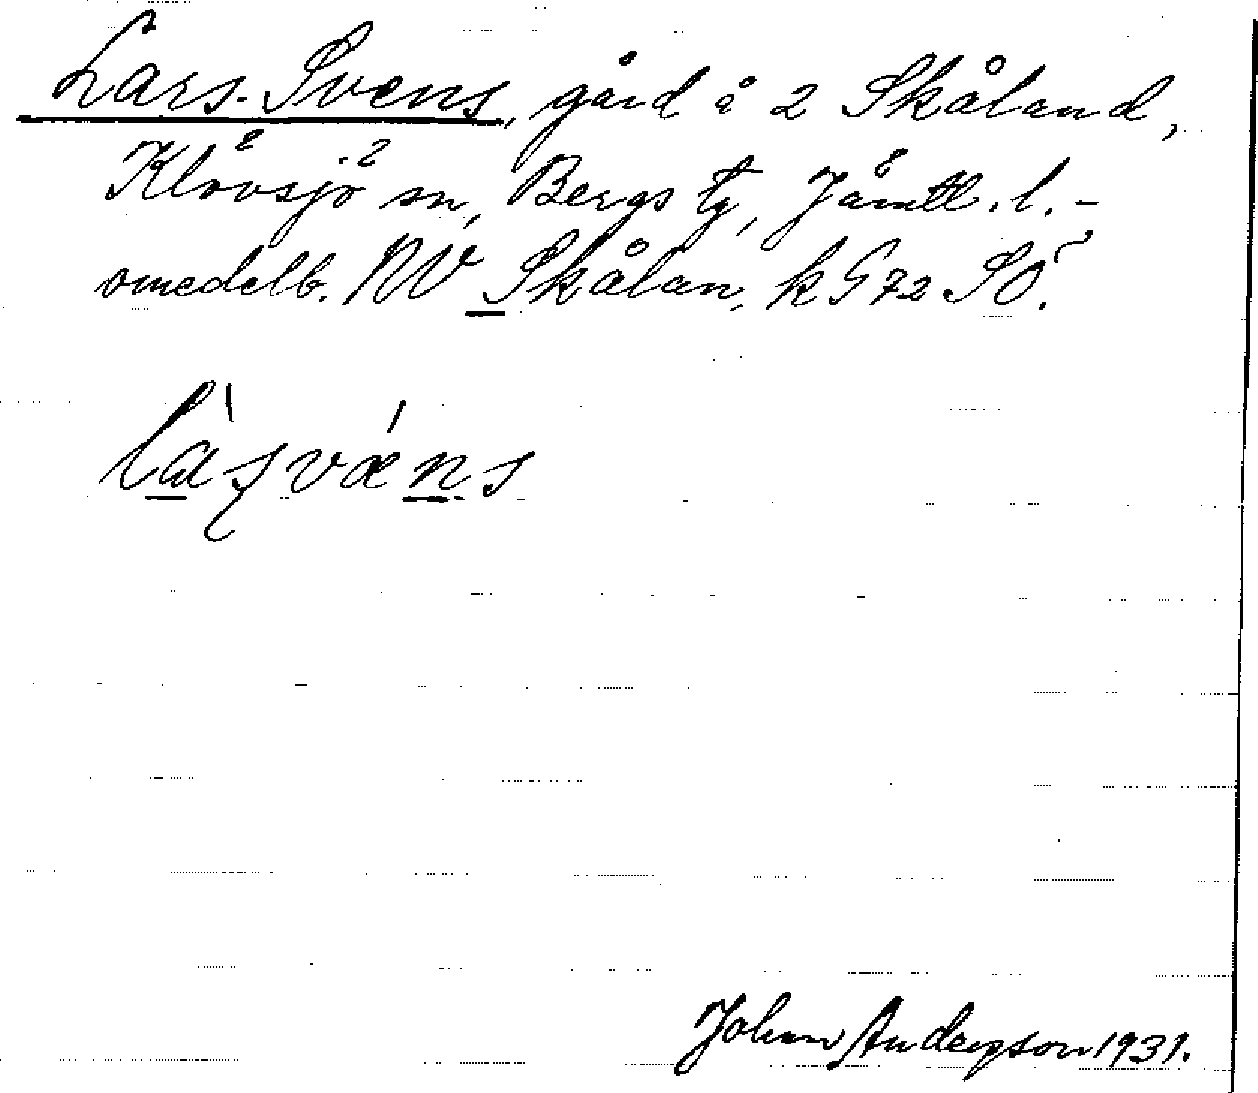 Lars-Svens, gård å 2 Skåland,
Klövsjö sn, Bergs tg, Jämtl. l. –
omedelb. NV Skålan, k G 72 SO.
làsvǽns
Johan Anderson 1931.